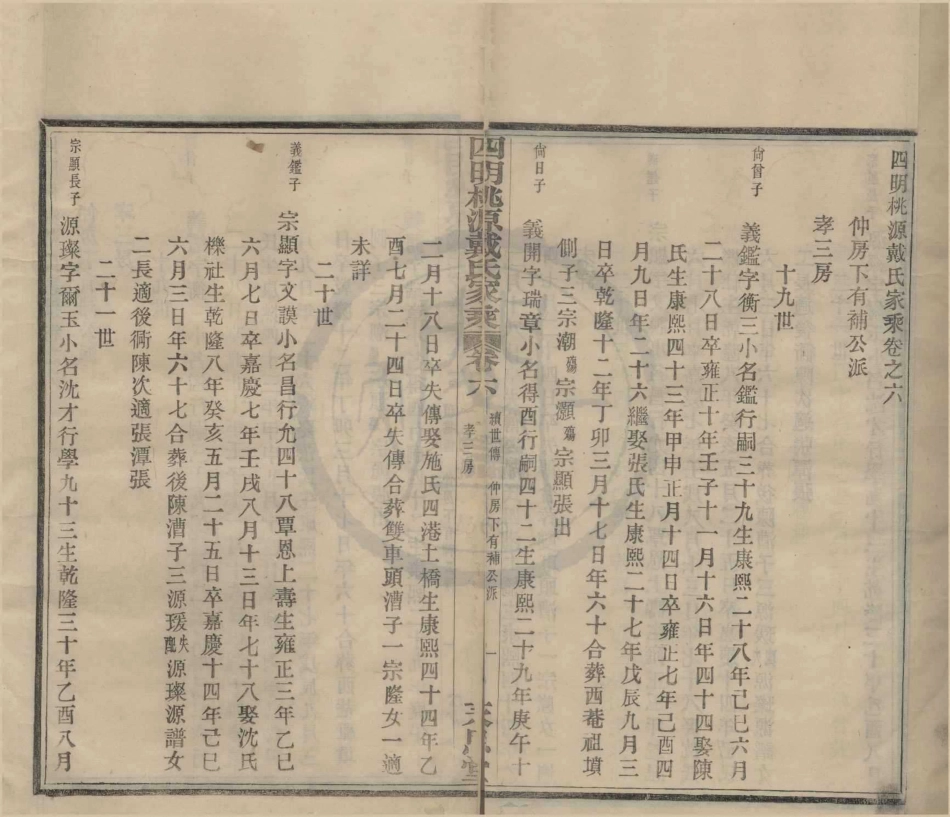 四明桃源戴氏家乘卷之六
仲房下有補公派
孝三房
十九世
尙曾子
義鑑字衡三小名鑑行嗣三十九生康熙二十八年己巳六月
二十八日卒雍正十年壬子十一月十六日年四十四娶陳
氏生康熙四十三年甲申正月十四日卒雍正七年己酉四
月九日年二十六繼娶張氏生康熙二十七年戊辰九月三
日卒乾隆十二年丁卯三月十七日年六十合葬西菴祖墳
側子三宗潮殤宗灝殤宗顯張出
尙日子
義開字瑞章小名得酉行嗣四十二生康熙二十九年庚午十
四明桃源戴氏家乘
卷六
續世傳 仲房下有補公派
孝三房
一
二月十八日卒失傳娶施氏四港土橋生康熙四十四年乙
酉七月二十四日卒失傳合葬雙車頭漕子一宗隆女一適
未詳
二十世
義鑑子
宗顯字文謨小名昌行允四十八覃恩上壽生雍正三年乙巳
六月七日卒嘉慶七年壬戌八月十三日年七十八娶沈氏
櫟社生乾隆八年癸亥五月二十五日卒嘉慶十四年己巳
六月三日年六十七合葬後陳漕子三源瑗失配源璨源譜女
二長適後衕陳次適張潭張
二十一世
宗顯長子
源璨字爾玉小名沈才行學九十三生乾隆三十年乙酉八月